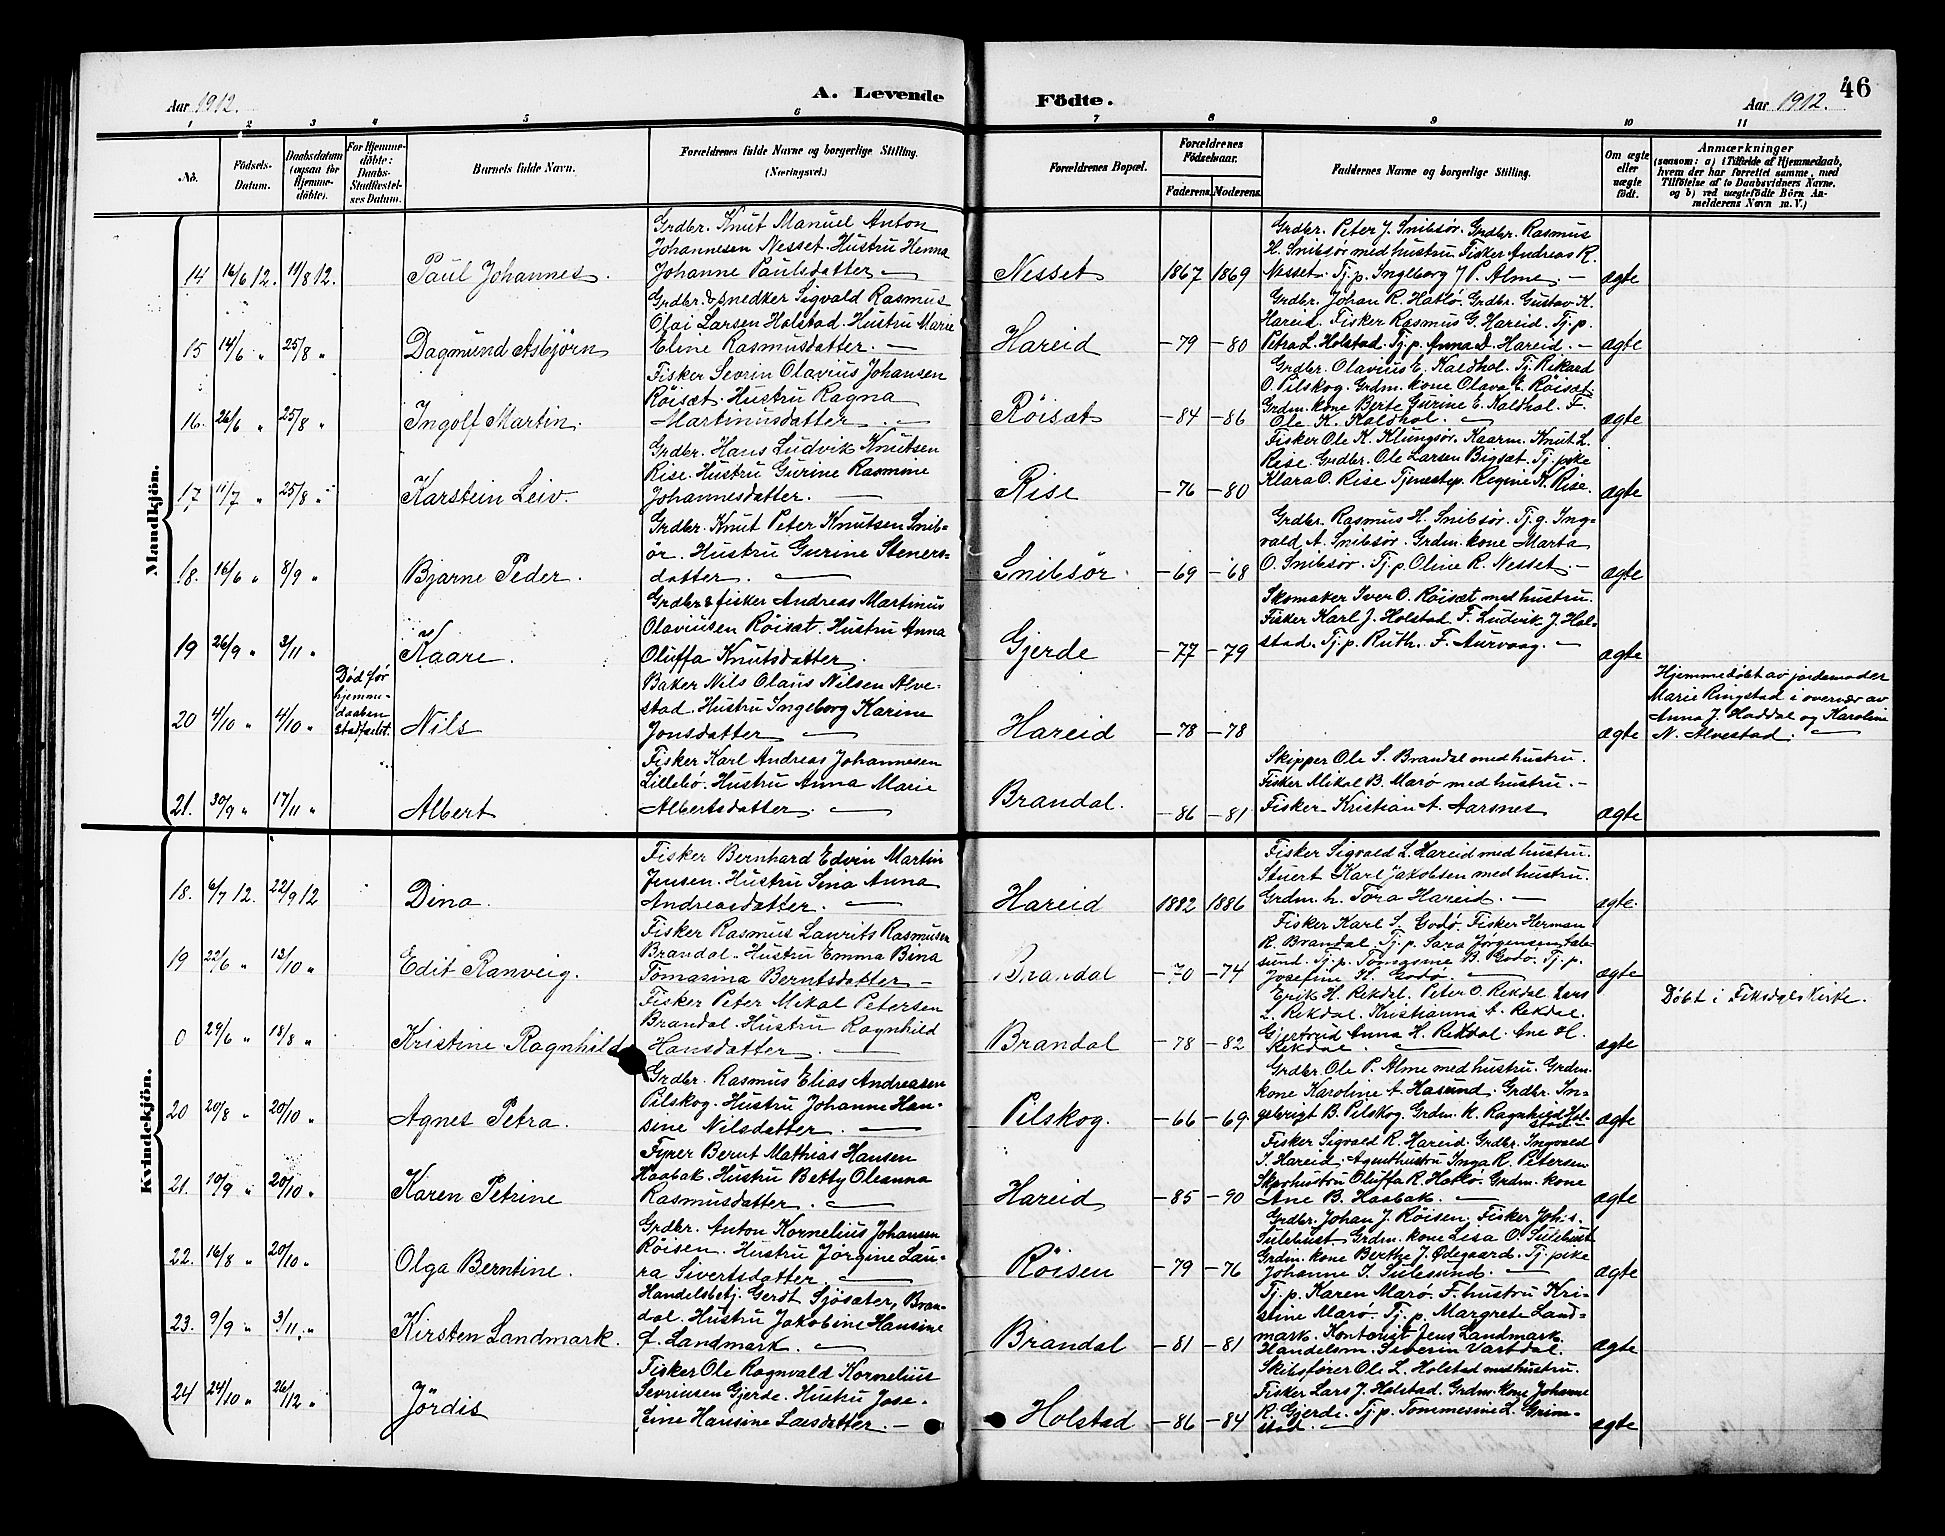 Aar 1912.
A. Levende
Födte.
Aar 1912.
46
1 2 3 4 5 6 7 8 9 10 11
No.
Födsels-
Datum.
Daabsdatum
(ogsaa for
Hjemme-
döbte).
For Hjemme-
döbte:
Daabs-
Stadfæstel-
ses Datum.
Barnets fulde Navn.
Forældrenes fulde Navne og borgerlige Stilling.
(Næringsvei.)
Forældrenes Bopæl.
Forældrenes
Födselsaar.
Faderens. Moderens.
Faddernes Navne og borgerlige Stilling.
Om ægte
eller
uægte
födt.
Anmærkninger
(saasom: a) i Tilfælde af Hjemmedaab,
hvem der har forrettet samme, med
Tilföielse af to Daabsvidners Navne,
og b) ved uægtefödte Börn An-
melderens Navn m. V.)
Mandkjön.
14 16/6 12. 11/8 12. Paul Johannes.
Grdbr. Knut Manuel Anton
Johannesen Nesset. Hustru Henna
Johanne Paulsdatter —
Nesset 1867 1869
Grdbr. Peter J. Snibsør. Grdbr. Rasmus
H. Snibsør med hustru. Fisker Andreas R.
Nesset. Tj. p. Ingeborg J P. Alme. —
ægte
15 14/6 " 25/8 " Dagmund Asbjörn
Grdbr. & snedker Sigvald Rasmus
Olai Larsen Holstad. Hustru Marie
Eline Rasmusdatter. —
Hareid —79 —80
Grdbr. Johan R. Hatlø. Grdbr. Gustav K.
Hareid. Fisker Rasmus G. Hareid. Tj. p.
Petra L. Holstad. Tj. p. Anna D. Hareid. —
ægte
16. 26/6 " 25/8 " Ingolf Martin.
Fisker Sevrin Olavus Johansen
Röisæt. Hustru Ragna
Martinusdatter. —
Röisæt —84 —86
Grdbr. Olavius E. Kaldhol. Tj. Rikard
O. Pilskog. Grdm. kone Olava E. Röisæt
Grdm. kone Berte Gurine E. Kaldhol. F.
Ole K. Kaldhol. —
ægte
17 11/7 " 25/8 " Karstein Leiv.
Grdbr. Hans Ludvik Knutsen
Rise. Hustru Gurine Rasmine
Johannesdatter. —
Rise —76 —80
Fisker Ole K. Klungsör. Kaarm. Knut L.
Rise. Grdbr. Ole Larsen Bigsæt. Tj. pike
Klara O. Rise Tjenestep. Regine K. Rise.
ægte
18. 16/6 " 8/9 " Bjarne Peder.
Grdbr. Knut Peter Knutsen Snib-
ör. Hustru Gurine Steners-
datter. —
Snibsør. —69 —68
Grdbr. Rasmus H. Snibsør. Tj. g. Ing-
vald A. Snibsør. Grdm. kone Marta
O. Snibsør. Tj. p. Oline R. Nesset. —
ægte
19 26/9 " 3/11 " Kaare.
Grdbr & fisker Andreas Martinus
Olaviusen Röisæt. Hustru Anna
Oluffa Knutsdatter.
Gjerde —77 —79
Skomaker Iver O. Röisæt med hustru.
Fisker Karl J. Holstad F. Ludvik J Hol-
stad. Tj. p. Ruth. F. Aurvaag. —
ægte
20 4/10 " 4/10 "
Død før
hjemme-
daaben
stadfæstet.
Nils
Baker Nils Olaus Nilsen Alve-
stad. Hustru Ingeborg Karine
Jonsdatter —
Hareid —78 —78
ægte
Hjemmedøbt av jordemoder
Marie Ringstad i overvær av
Anna J. Haddal og Karoline
N. Alvestad. —
21. 30/9 " 17/11 " Albert
Fisker Karl Andreas Johannesen
Lillebö. Hustru Anna Marie
Albertsdatter. —
Brandal. —86 —81
Skipper Ole S. Brandal med hustru.
Fisker Mikal B. Marö med hustru. —
Fisker Kristian A. Aarsnes
ægte
Kvindekjön.
18. 6/7 12. 22/9 12 Dina.
Fisker Bernhard Edvin Martin
Jensen. Hustru Sina Anna
Andreasdatter. —
Hareid 1882 1886
Fisker Sigvald L. Hareid med hustru.
Stuert Karl Jakobsen med hustru.
Grdm. h. Tora Hareid. —
ægte.
19 22/6 " 13/10 " Edit Ranveig.
Fisker Rasmus Laurits Rasmusen
Brandal. Hustru Emma Bina
Tomasina Berntsdatter —
Brandal —70 —74
Fisker Karl S. Godø. Fisker Herman
R. Brandal. Tj. p. Sara Jørgensen Aale-
sund. Tj. p. Tomasine B. Godø. Tj. p.
Josefine K. Godø. —
ægte
0 29/6 " 18/8 " Kristine Ragnhild
Fisker Peter Mikal Petersen
Brandal. Hustru Ragnhild
Hansdatter. —
Brandal —78 —82
Erik H. Rekdal. Peter O. Rekdal Lars
L. Rekdal. Kristianna A. Rekdal.
Gjertrud Anna H. Rekdal. Ane H.
Rekdal. —
ægte
Döbt i Fiksdals Kirke.
20 20/8 " 20/10 " Agnes Petra.
Grdbr. Rasmus Elias Andreasen
Pilskog. Hustru Johanne Han-
sine Nilsdatter. —
Pilskog. —66 —69
Grdbr. Ole P. Alme med hustru. Grdm.
kone Karoline A. Hasund. Grdbr. In-
gebrigt B. Pilskog. Grdm. k. Ragnhild Hol-
stad —
ægte
21. 10/9 " 20/10 " Karen Petrine
Fyrer Bernt Mathias Hansen
Haabak. Hustru Betty Oleanna
Rasmusdatter. —
Hareid —85 —90
Fisker Sigvald R. Hareid. Grdbr. Ingvald
I. Hareid. Agenthustru Inga R. Petersen
Skarhustru Oluffa R. Hatlø. Grdm. kone
Ane B. Haabak. —
ægte
22. 16/8 " 20/10 " Olga Berntine.
Grdbr. Anton Kornelius Johansen
Röisen. Hustru Jørgine Lau-
ra Sivertsdatter. —
Röisen —79 —76
Grdbr. Johan J. Röisen. Fisker Johs.
Sulehust. Grdm. kone Lisa O. Sulehust
Grdm. kone Berthe J. Ødegaard. Tj. pike
Johanne I. Sulesund. —
ægte
23. 9/9 " 3/11 " Kirsten Landmark.
Handelsbetj. Gerdt Sjösæter, Bran-
dal. Hustru Jakobine Hansine
f. Landmark. —
Brandal —81 —81
Tj. p. Karen Marø. F. hustru Kri-
stine Marø. Tj. p. Margrete Land-
mark. Kontorist Jens Landmark.
Handelsm. Severin Vartdal.
ægte
24 24/10 " 26/12 " Jördis
Fisker Ole Ragnvald Kornelius
Sevrinsen Gjerde. Hustru Jose-
fine Hansine Larsdatter. —
Holstad —86 —84
Skibsfører Ole L. Holstad med hustru.
Fisker Lars J. Holstad. Grdm. kone Johanne
R. Gjerde. Tj. p. Tommesine L. Grim-
stad. —
ægte